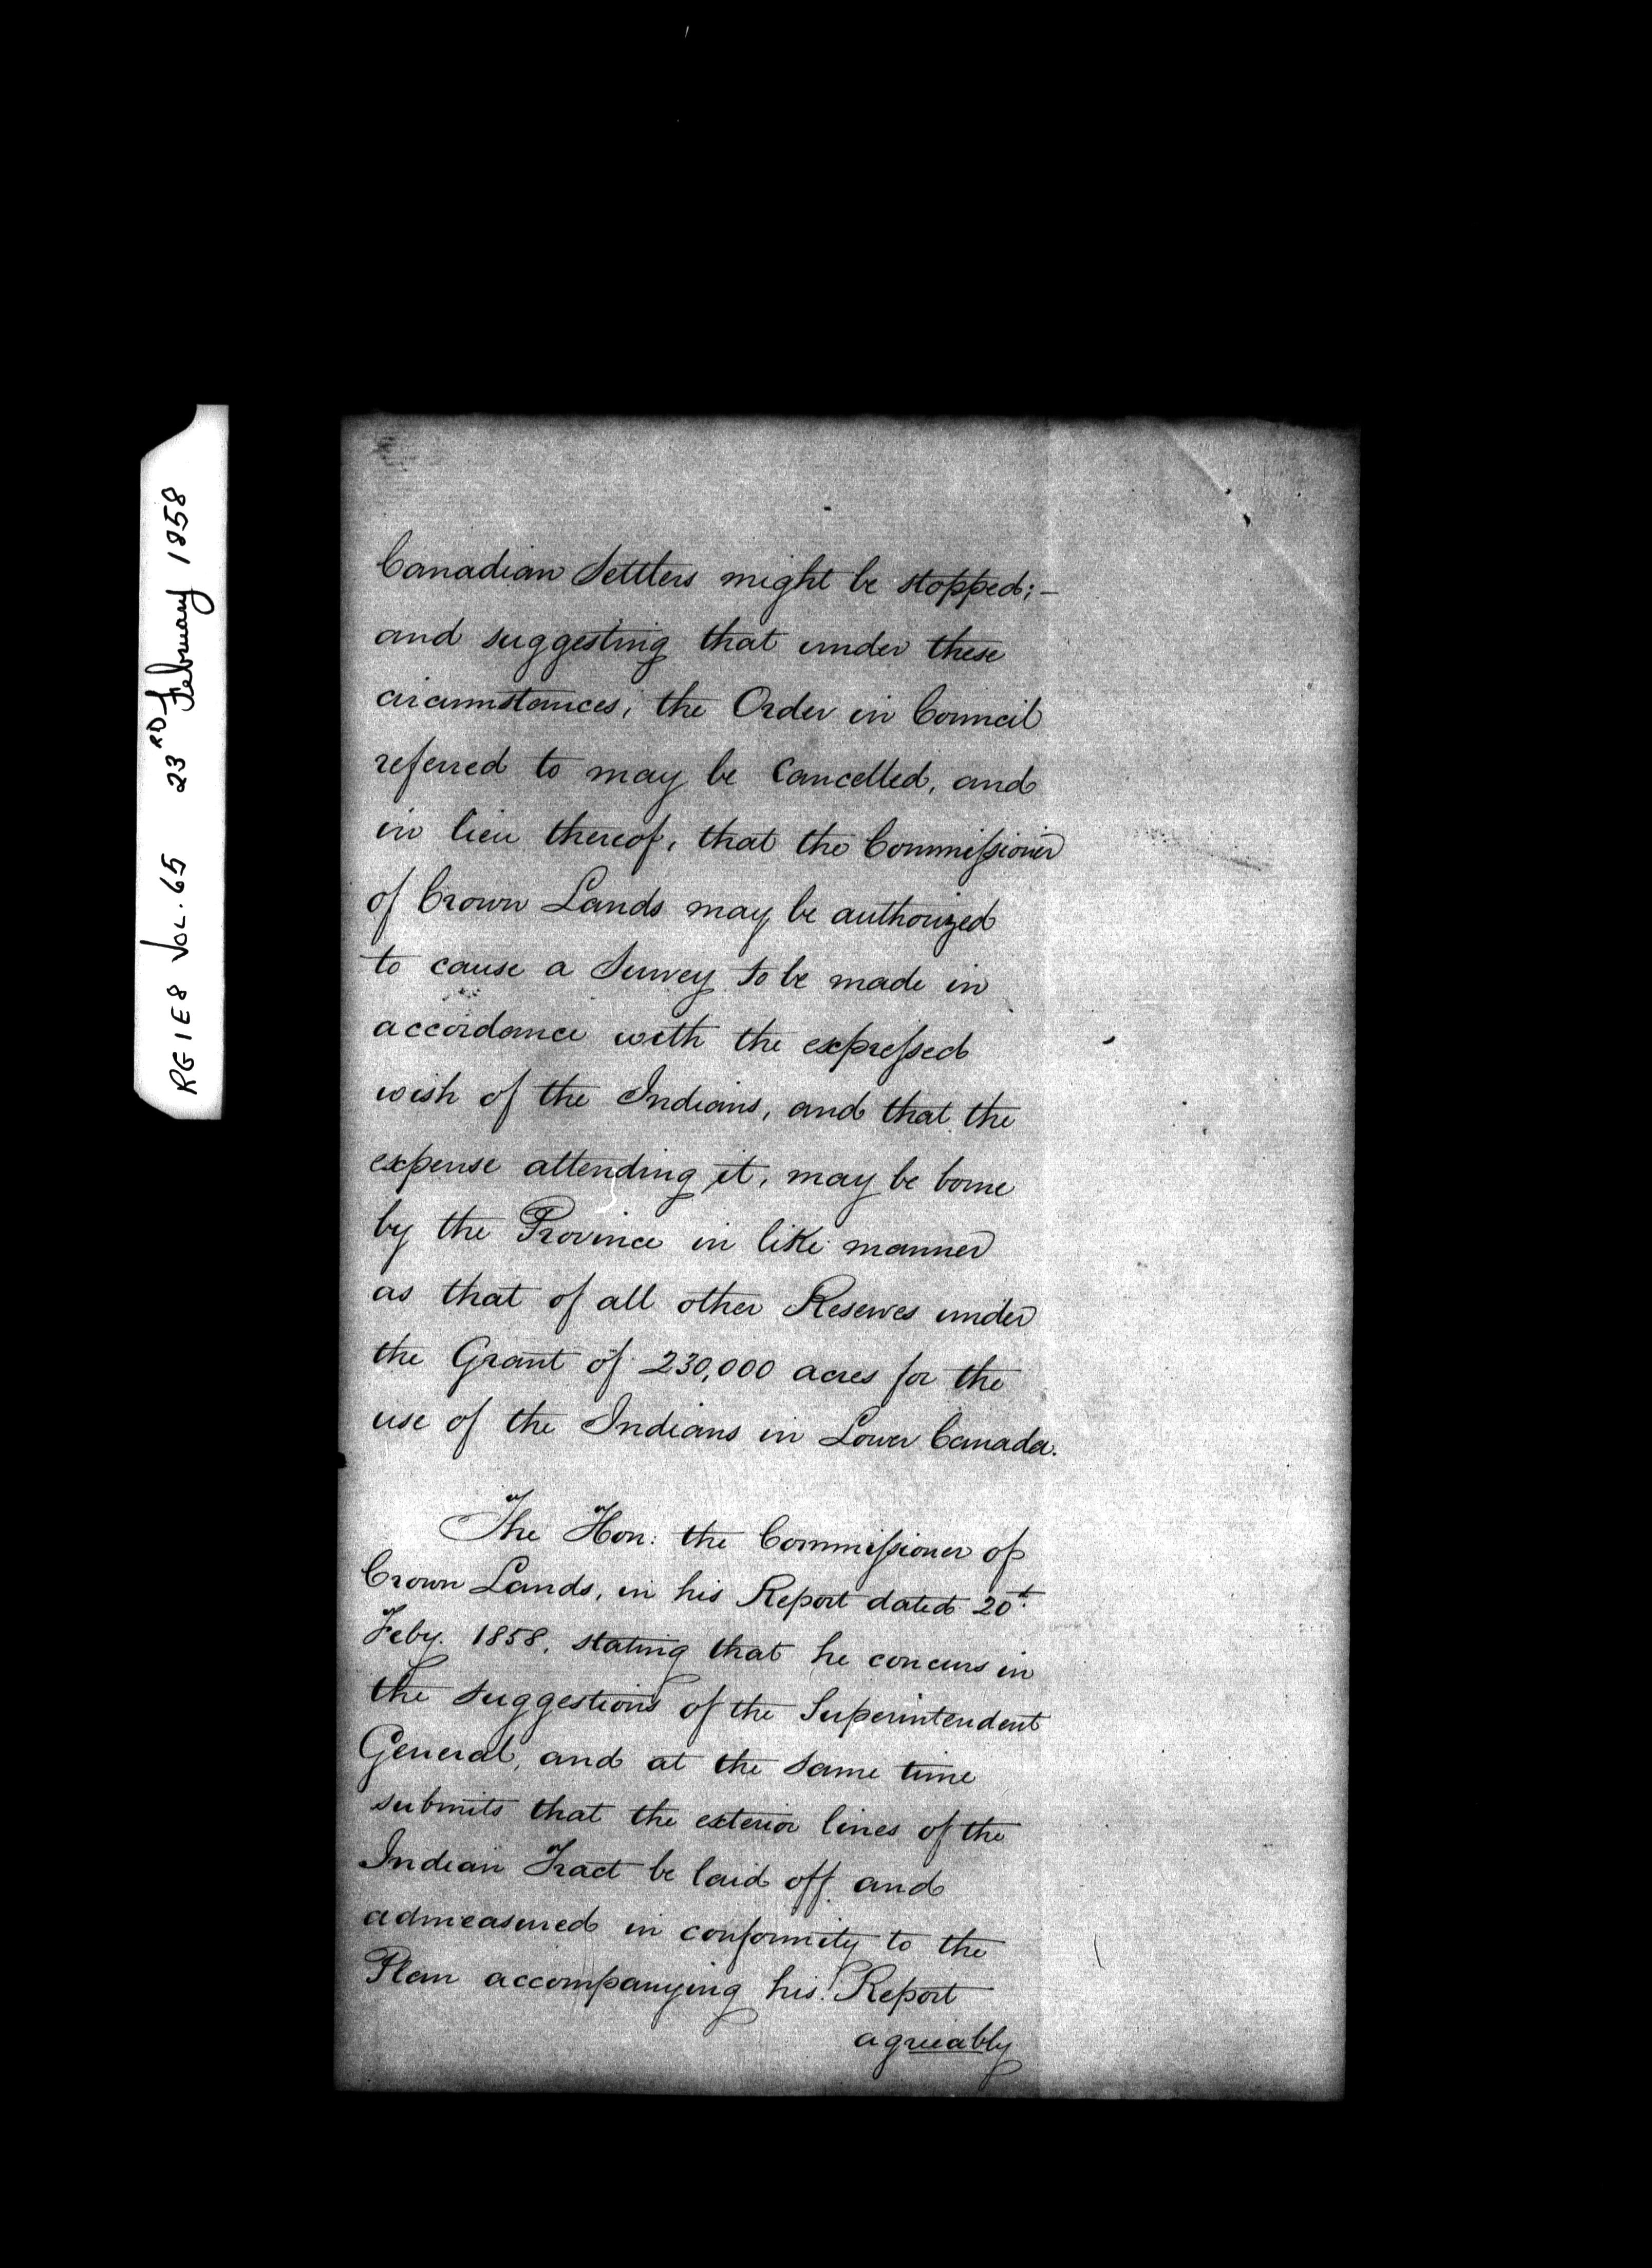 RG1E8 VOL. 65 23RD February 1858
Canadian Settlers might be stopped;—
and suggesting that under these
circumstances, the Order in Council
referred to may be Cancelled, and
in lieu thereof, that the Commissioner
of Crown Lands may be authorized
to cause a Survey to be made in
accordance with the expressed
wish of the Indians, and that the
expense attending it, may be borne
by the Province in like manner
as that of all other Reserves under
the Grant of 230,000 acres for the
use of the Indians in Lower Canada.
The Hon: the Commissioner of
Crown Lands, in his Report dated 20th
Feby. 1858, stating that he concurs in
the suggestions of the Superintendent
General, and at the same time
submits that the exterior lines of the
Indian Tract be laid off and
admeasured in conformity to the
Plan accompanying his Report
agreeably